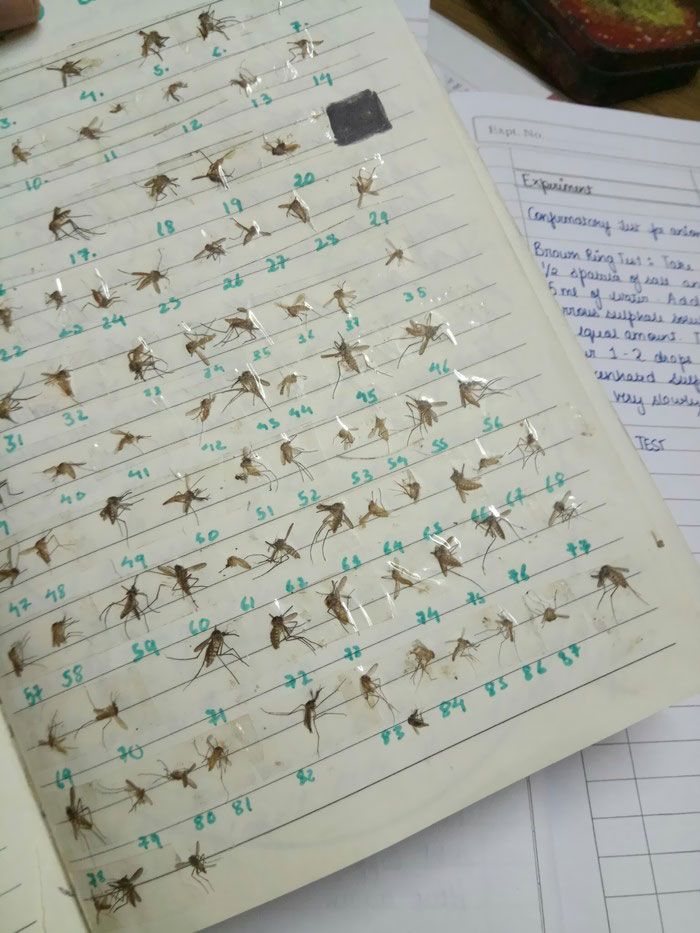 3. 4. 5. 6. 7.
10. 11 12 13 14
17. 18 19 20
22 23 24 25 26 27 28 29
31 32 33 34 35 36 37 38
40 41 42 43 44 45 46
47 48 49 50 51 52 53 54 55 56
57 58 59 60 61 62 63 64 65 66 67 68
69 70 71 72 73 74 75 76 77
78 79 80 81 82 83 84 85 86 87
Expt. No.
Experiment
Confirmatory Test for anion
Brown Ring Test: Take
1/2 spatula of salt
5 ml of water. Add
sulphate
equal amount.
1-2 drops
very slowly
TEST